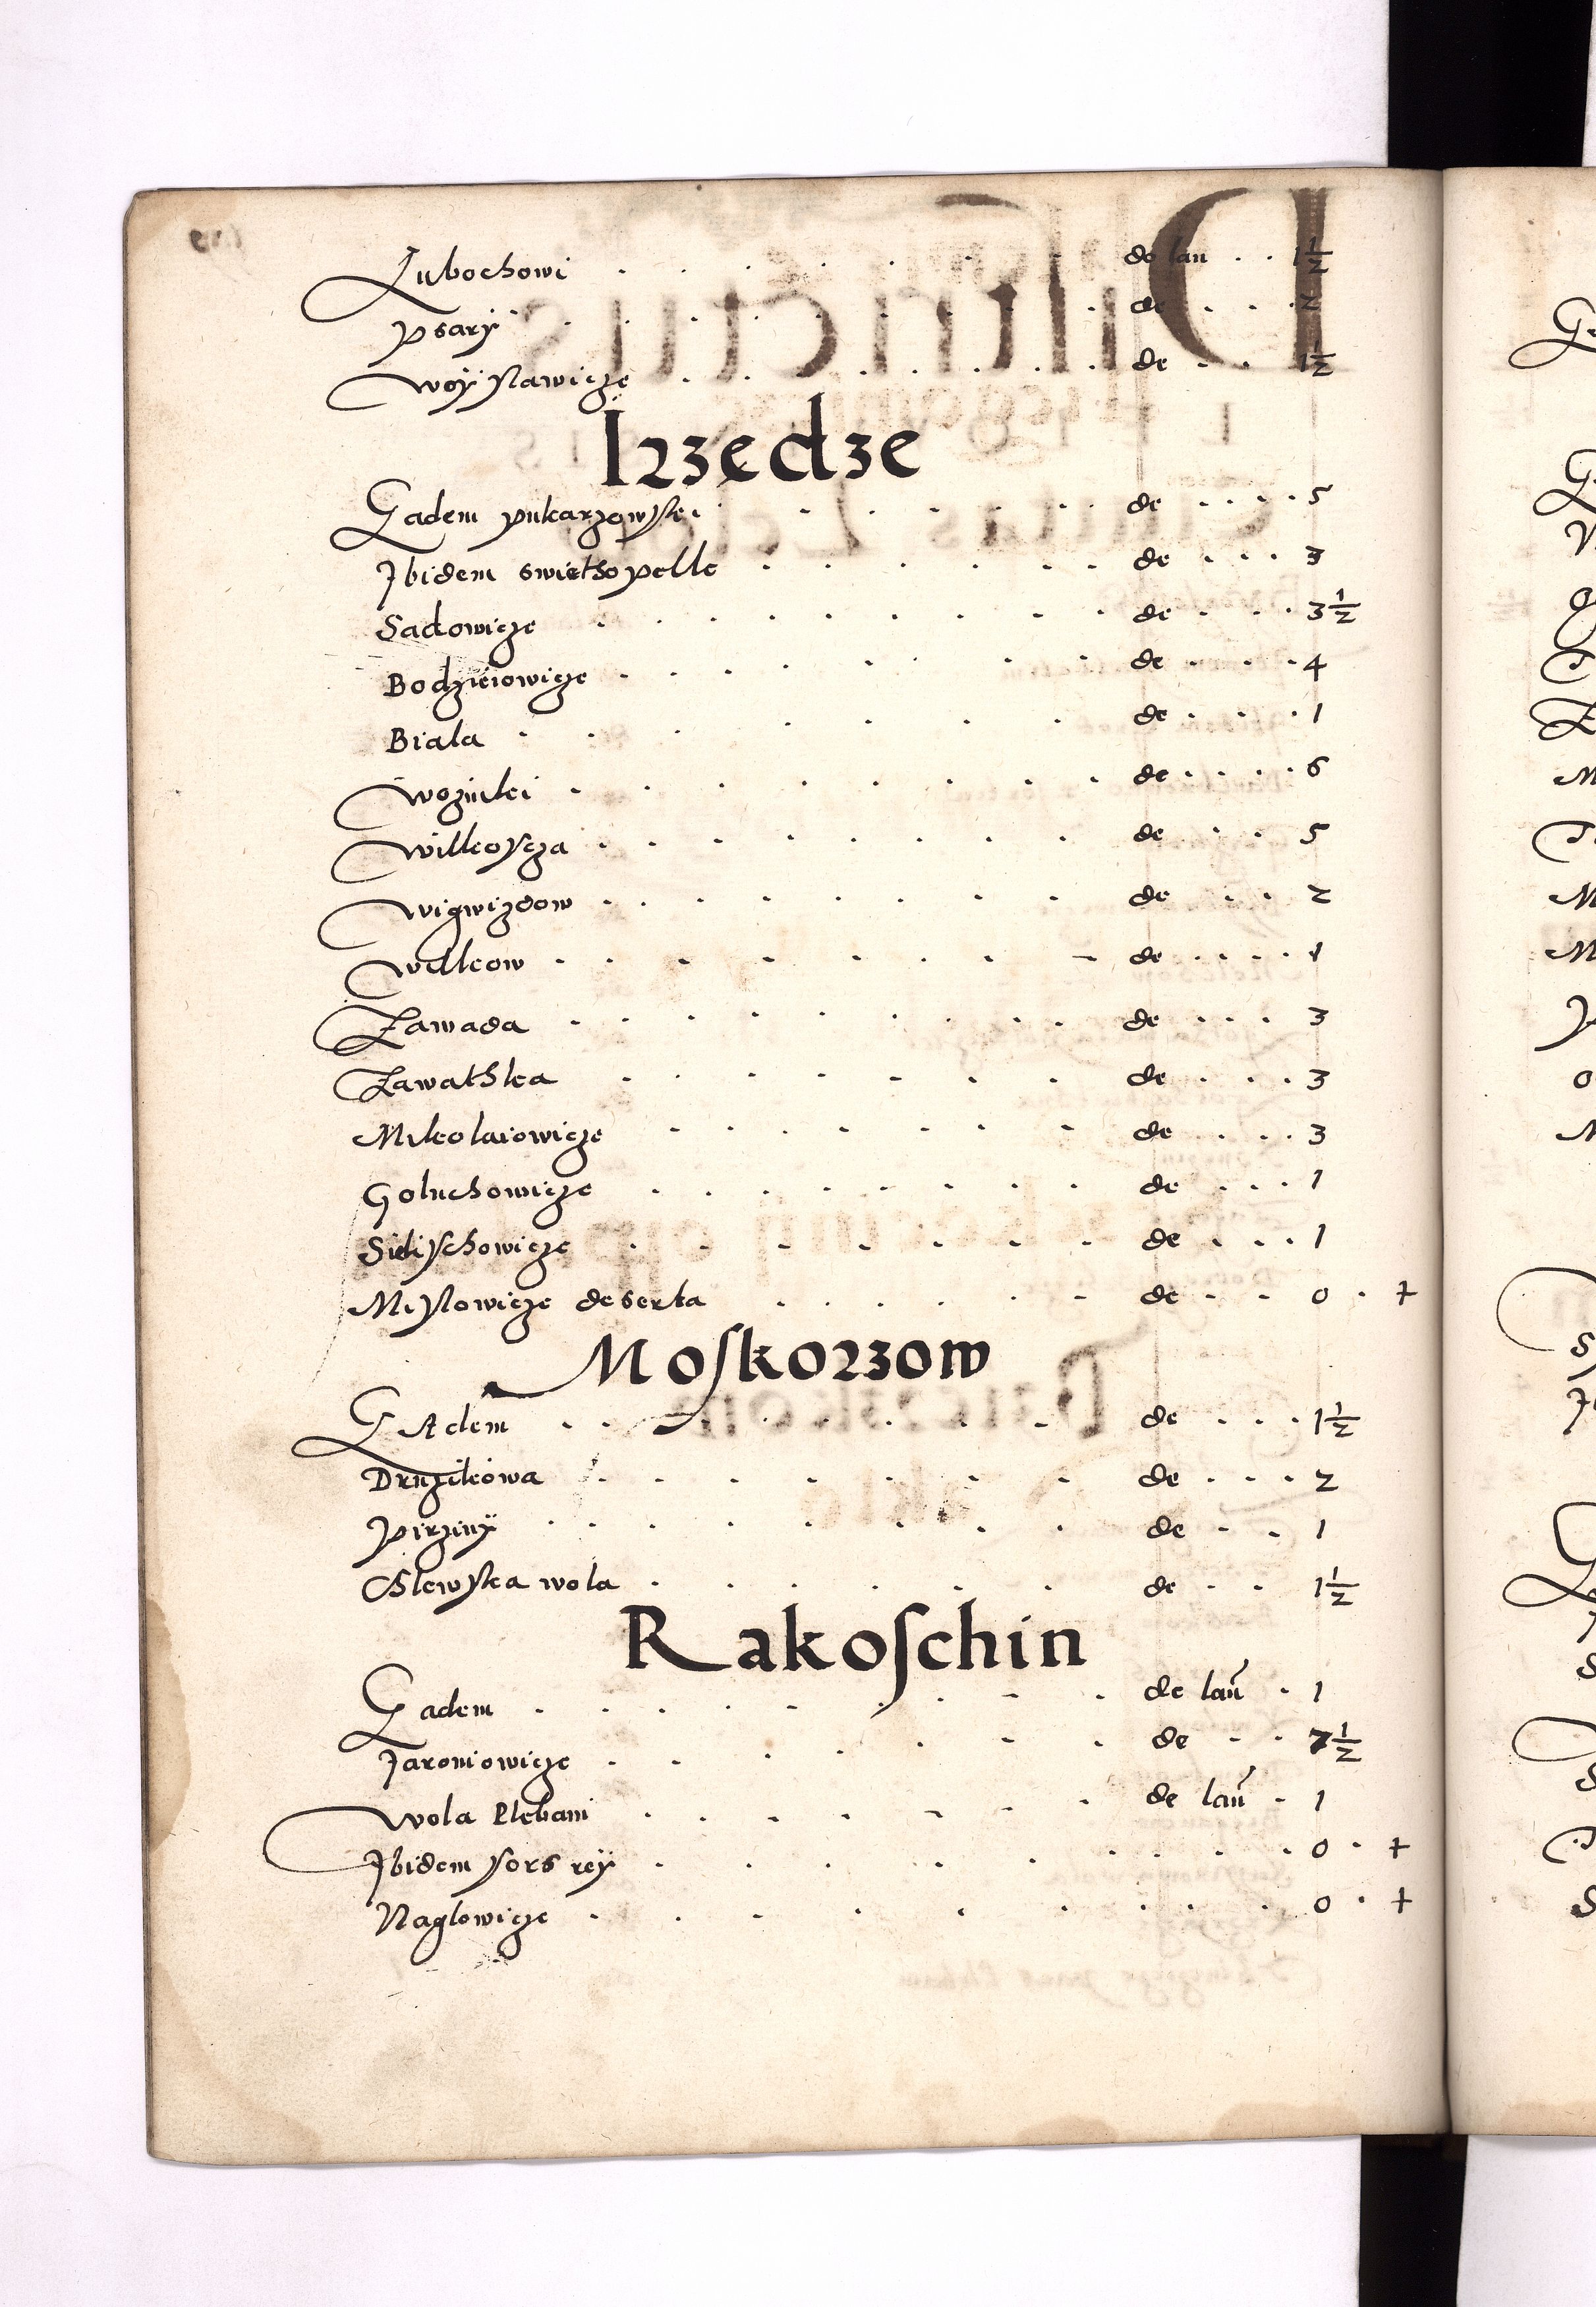 Lubochowi . . . . . . . de lan . . 1½
Psary . . . . . . . de . . . 2
Woyslawicze . . . . . . . de . . . 1½
Irzedze
Eadem pukarzowske . . . . . . de . . . . 5
Ibidem swiethopelke . . . . . . de . . . 3
Sadowicze . . . . . . . de . . . 3½
Bodzieiowicze . . . . . . . de . . . . 4
Biala . . . . . . . de . . . . 1
Wozniki . . . . . . . de . . . . 6
Wilkoscza . . . . . . . de . . . 5
Wigwizdow . . . . . . . de . . . 2
Welkow . . . . . . . de . . . . 1
Zawada . . . . . . . de . . . 3
Zawathka . . . . . . . de . . . . 3
Mikolaiowicze . . . . . . . de . . . . 3
Goluchowicze . . . . . . . de . . . 1
Sidischowicze . . . . . . . de . . . 1
Mislowicze deserta . . . . . de . . . 0 . +
Moskorzow
Eadem . . . . . . . de . . . . 1½
Druzikowa . . . . . . . de . . . 2
Pirziny . . . . . . . de . . . 1
Chlewska wola . . . . . . de . . 1½
Rakoschin
Eadem . . . . . . . de lan . 1
Jaroniowicze . . . . . . de . . 7½
Wola Plebani . . . . . . de lan . 1
Ibidem sors rey . . . . . . . . 0 . +
Naglowicze . . . . . . . . 0 . +